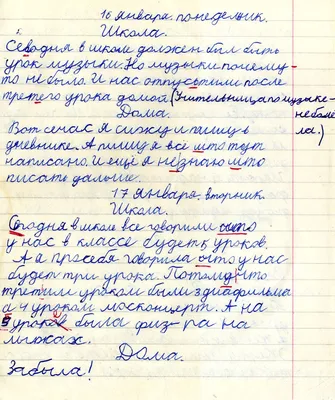 16 января понедельник.
Школа.
Севодня в школе должен был быть
урок музыки. Но музыки почему-
то не было. И нас отпустили после
третего урока домой (Учительница по музыке
Дома. не было
ла.)
Вот сечас я сижу и пишу в
дневнике. А пишу я всё што тут
написано. И ещё я незнаю што
писать дальше.
17 января, вторник.
Школа.
Согодня в школе все говорили што
у нас в классе будет 5 уроков.
А я просебя говорила што у нас
будет три урока. Потому што
третим уроком были 3 диафильма
а 4 уроком москонцерт. А на
5 уроков была физ-ра на
лыжах.
Дома.
Забыла!